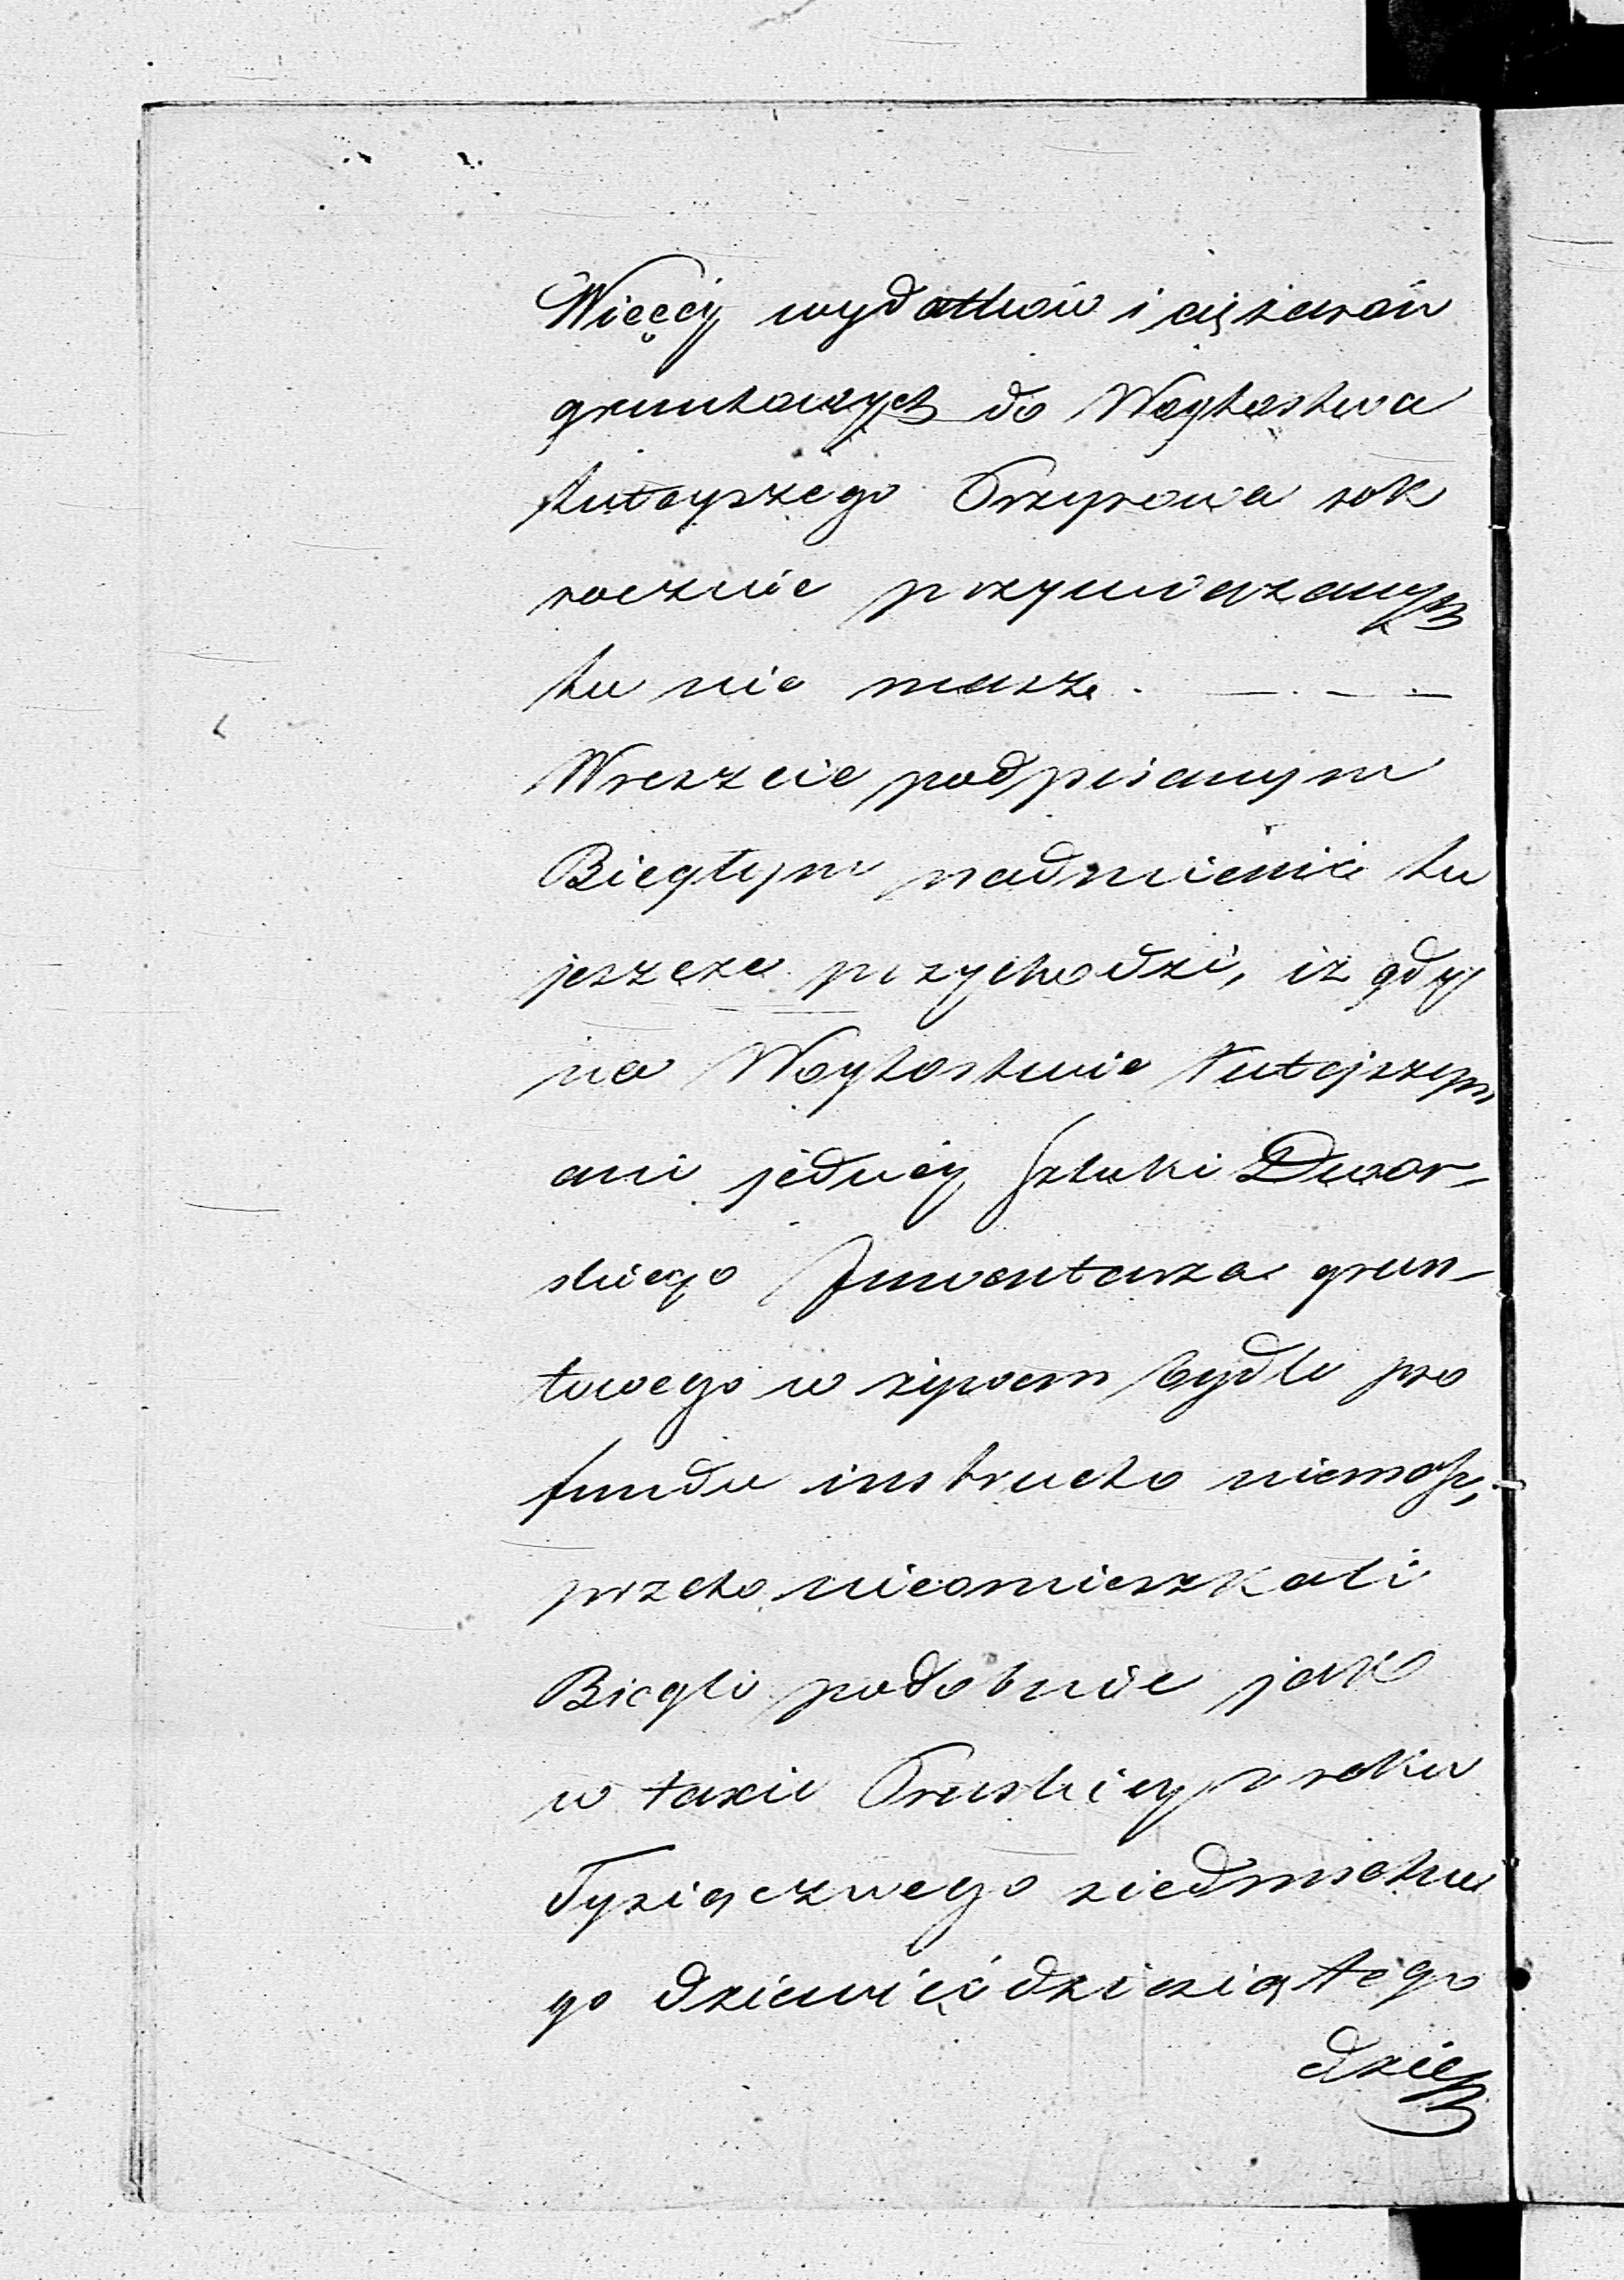 Więcéy wydatków i ciężarów
gruntowych do Woytostwa
tuteyszego Przyrowa rok
rocznie przywiązanych
tu nie masz. — . — . —
Wreszcie podpisanym
Biegłym nadmienić tu
jeszcze przychodzi, iż gdy
na Woytostwie tutejszym
ani jednéy sztuki Dwor-
skiego Inwentarza grun-
towego w żywem bydle pro
fundo instructo niemasz,
przeto nieomieszkali
Biegli podobnie jak
w taxie Pruskiey z roku
Tysiącznego siedmsetne
go dziewięćdziesiątego
dzie